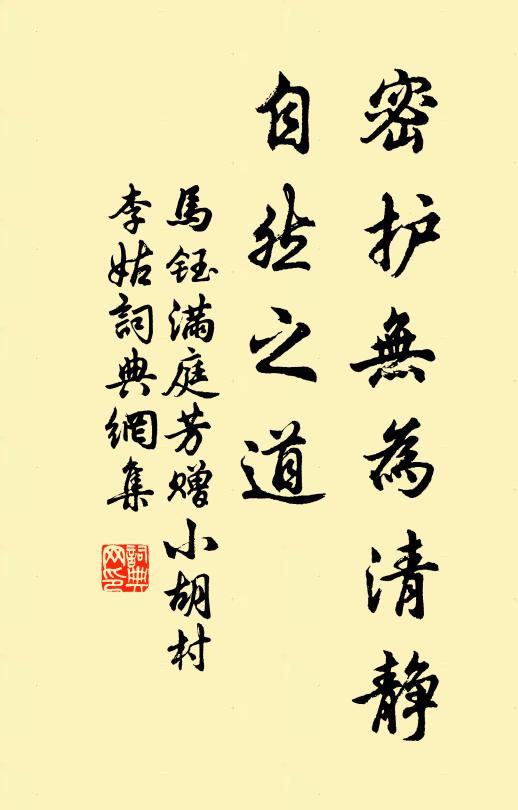 密护無為清静
自然之道
馬鈺满庭芳赠小胡村
李姑詞典網集
詞典
网印